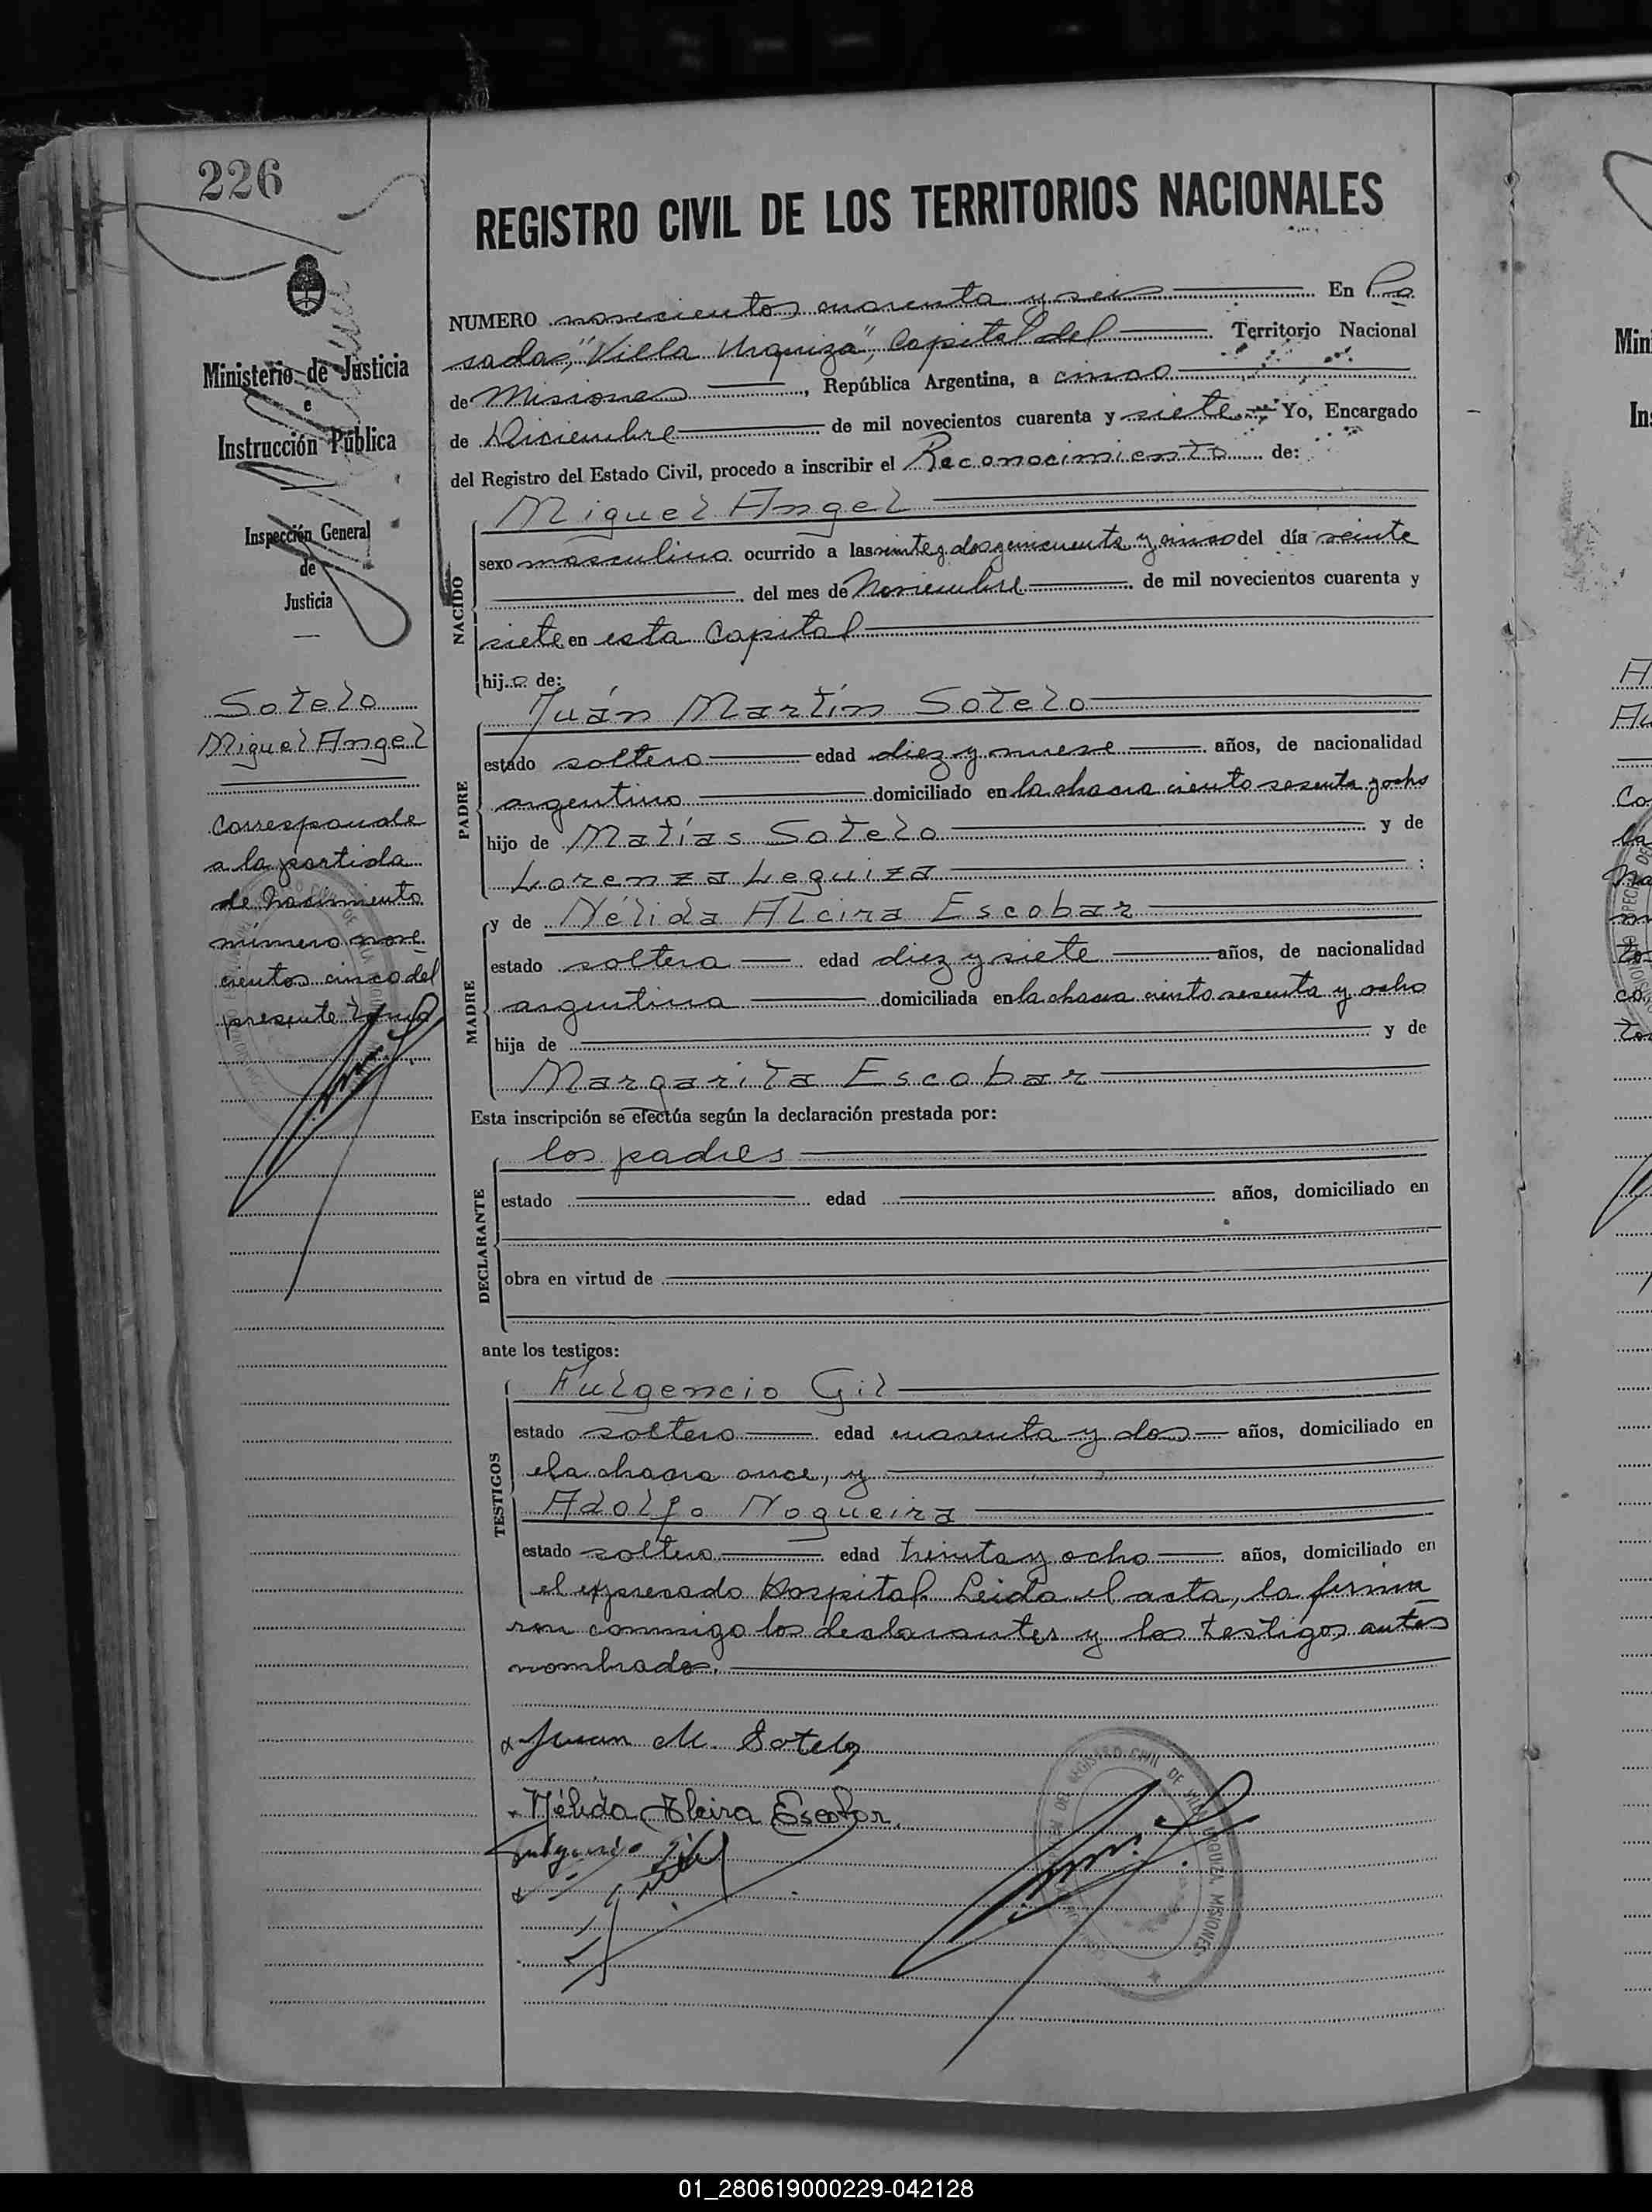 226
REGISTRO CIVIL DE LOS TERRITORIOS NACIONALES
Ministerio de Justicia
e
Instrucción Pública
Inspección General
de
Justicia
Sotelo
Miguel Angel
corresponde
a la partida
de nacimiento
número nove
cientos cinco del
presente tomo
NUMERO novecientos cuarenta y seis En Po
sadas, "Villa Urquiza", Capital del Territorio Nacional
de Misiones, República Argentina, a cinco
de Diciembre de mil novecientos cuarenta y siete.- Yo, Encargado
del Registro del Estado Civil, procedo a inscribir el Reconocimiento de:
NACIDO
Miguel Angel
sexo masculino ocurrido a las veinte y dos y cincuenta y cinco del día veinte
del mes de Noviembre de mil novecientos cuarenta y
siete en esta Capital
hijo de:
PADRE
Juán Martín Sotelo
estado soltero edad diez y nueve años, de nacionalidad
argentino domiciliado en la chacra ciento sesenta y ocho
hijo de Matías Sotelo y de
Lorenza Leguiza :
MADRE
y de Nélida Alcira Escobar
estado soltera edad diez y siete años, de nacionalidad
argentina domiciliada en la chacra ciento sesenta y ocho
hija de y de
Margarita Escobar
Esta inscripción se efectúa según la declaración prestada por:
DECLARANTE
los padres
estado edad años, domiciliado en
obra en virtud de
ante los testigos:
TESTIGOS
Fulgencio Gil
estado soltero edad cuarenta y dos años, domiciliado en
la chacra once, y
Adolfo Nogueira
estado soltero edad treinta y ocho años, domiciliado en
el expresado Hospital. Leida el acta, la firma
ron conmigo los declarantes y los testigos antes
nombrados.
Juan M. Sotelo
Nélida Alcira Escobar.
Fulgencio Gil
REGISTRO CIVIL DE VILLA URQUIZA, MISIONES
01_280619000229-042128